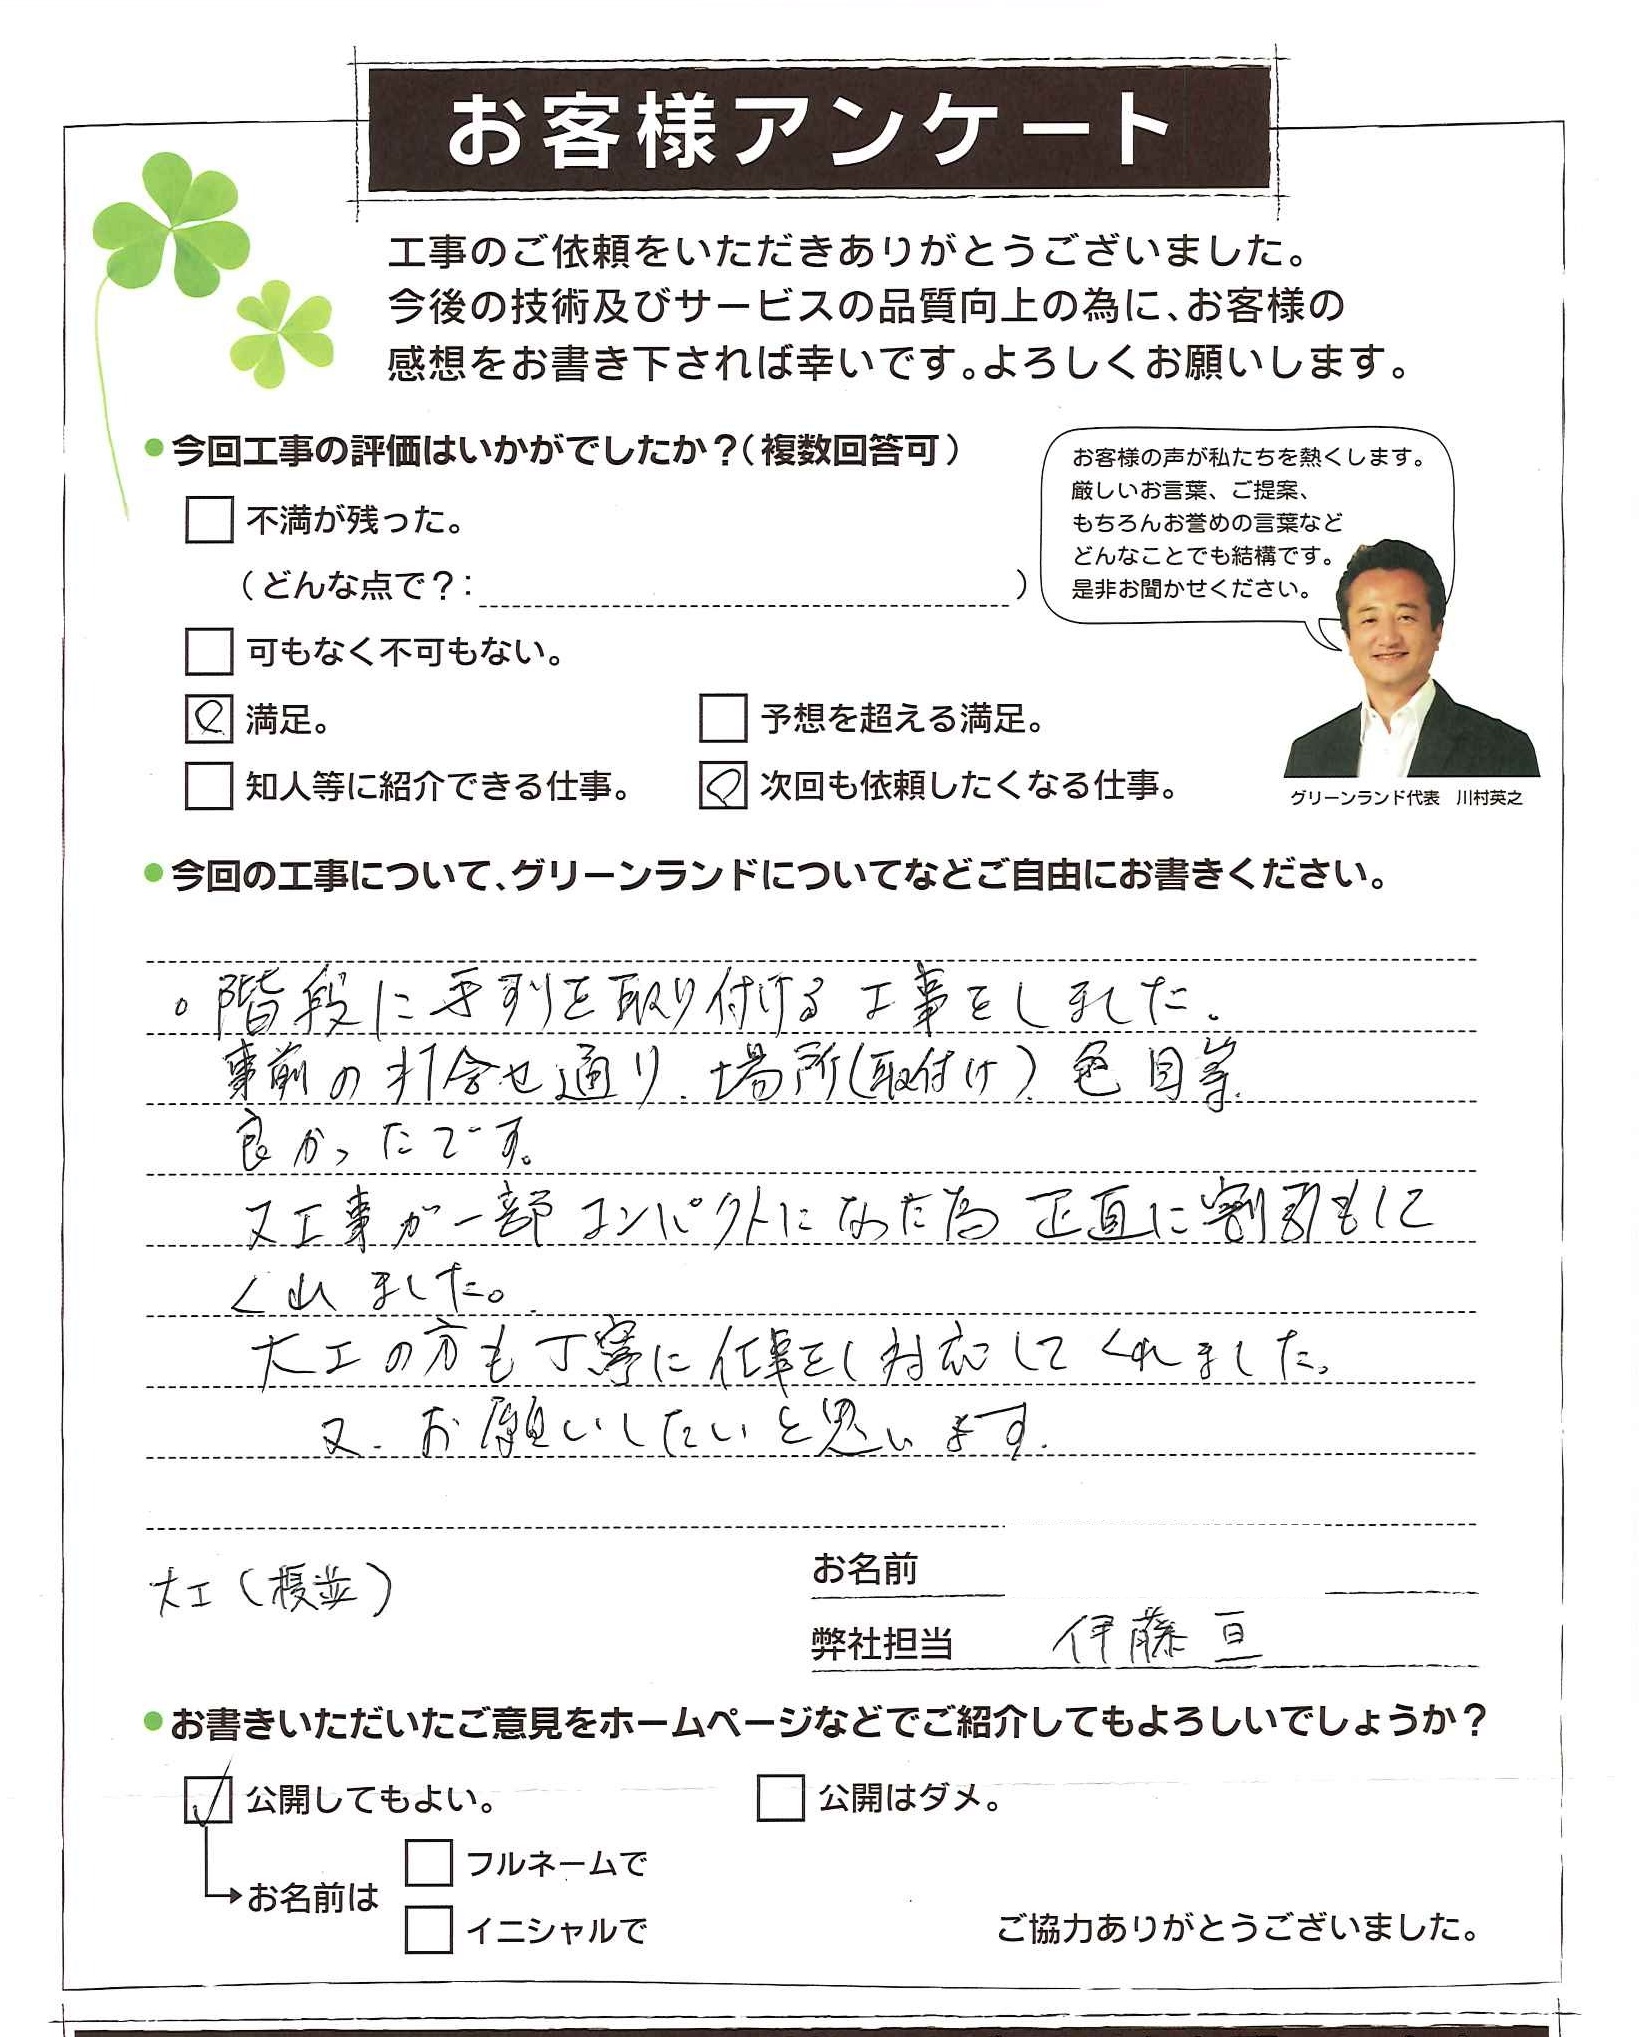 お客様アンケート
工事のご依頼をいただきありがとうございました。
今後の技術及びサービスの品質向上の為に、お客様の
感想をお書き下されば幸いです。よろしくお願いします。
今回工事の評価はいかがでしたか？（複数回答可）
不満が残った。
（どんな点で？：　）
可もなく不可もない。
満足。
予想を超える満足。
知人等に紹介できる仕事。
次回も依頼したくなる仕事。
お客様の声が私たちを熱くします。
厳しいお言葉、ご提案、
もちろんお誉めの言葉など
どんなことでも結構です。
是非お聞かせください。
グリーンランド代表　川村英之
今回の工事について、グリーンランドについてなどご自由にお書きください。
。階段に手刷を取り付ける工事をしました。
事前の打合せ通り、場所（取付け）、色目等
良かったです。
又工事が一部コンパクトになった為正直に割引もして
くれました。
大工の方も丁寧に仕事をし対応してくれました。
又、お願いしたいと思います。
大工（榎並）
お名前
弊社担当　伊藤亘
お書きいただいたご意見をホームページなどでご紹介してもよろしいでしょうか？
公開してもよい。
公開はダメ。
お名前は
フルネームで
イニシャルで
ご協力ありがとうございました。